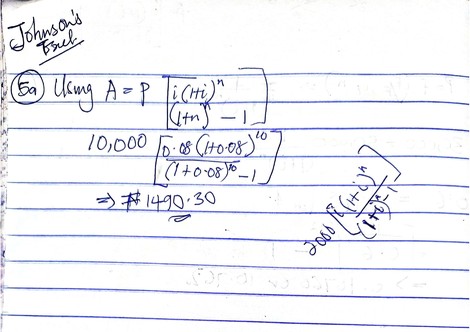 Johnson's
Excel
5a Using A = P [i(1+i)^n
(1+n)^n - 1]
10,000 [0.08(1+0.08)^10
(1+0.08)^10 - 1]
⇒ ₦1490.30
2000 [i(1+i)^n
(1+i)^n - 1]